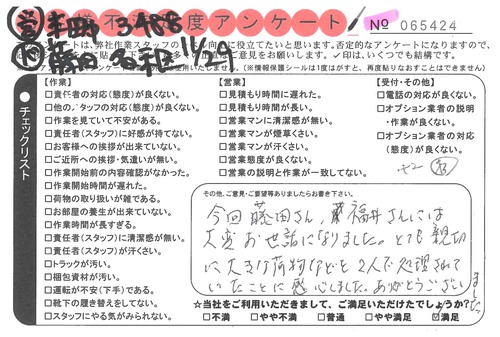 度アンケート
No 065424
㊔ 3488
11/19
は、弊社作業スタッフの
に役立てたいと思います。否定的なアンケートになりますので、
ご意見をお願いします。✓印は、いくつでも結構です。
使用いたしません。(※情報保護シールは1度はがすと、再度貼りなおすことはできません)
●チェックリスト
【作業】
□責任者の対応(態度)が良くない。
□他のスタッフの対応(態度)が良くない。
□作業を見ていて不安がある。
□責任者(スタッフ)に好感が持てない。
□お客様への挨拶が出来ていない。
□ご近所への挨拶・気遣いが無い。
□作業開始前の内容確認がなかった。
□作業開始時間が遅れた。
□荷物の取り扱いが雑である。
□お部屋の養生が出来ていない。
□作業時間が長すぎる。
□責任者(スタッフ)に清潔感が無い。
□責任者(スタッフ)が汗くさい。
□トラックが汚い。
□梱包資材が汚い。
□運転が不安(下手)である。
□靴下の履き替えをしてない。
□スタッフにやる気がみられない。
【営業】
□見積もり時間に遅れた。
□見積もり時間が長い。
□営業マンに清潔感が無い。
□営業マンが煙草くさい。
□営業マンが汗くさい。
□営業態度が良くない。
□営業の説明と作業が一致してない。
【受付・その他】
□電話の対応が良くない。
□オプション業者の説明
・作業が良くない。
□オプション業者の対応
(態度)が良くない。
その他、ご意見・ご要望等ありましたらお書き下さい。
今回藤田さん、福井さんには
大変お世話になりました。とても親切
に大きな荷物などを2人で処理されて
いたことに感心しました。ありがとうござい
ました
☆当社をご利用いただきまして、ご満足いただけたでしょうか?
□不満 □やや不満 □普通 □やや満足 ☑満足